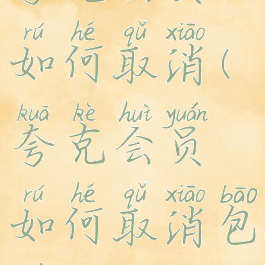 rú hé qǔ xiāo
如何取消(
kuā kè huì yuán
夸克会员
rú hé qǔ xiāo bāo
如何取消包